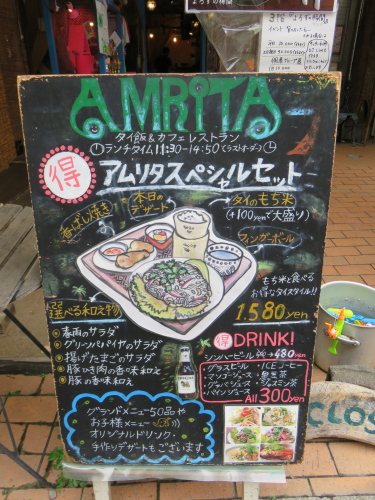 AMRITA
タイ飯&カフェレストラン
ランチタイム11:30-14:50(ラストオーダー)
得
アムリタスペシャルセット
本日の
デザート
タイのもち米
(+100yenで大盛り)
フィンガーボール
もち米と食べる
お得なタイスタイル!!
1.580yen
選べる和え物
春雨のサラダ
グリーンパパイヤのサラダ
揚げたまごのサラダ
豚ひき肉の香味和え
豚の香味和え
得 DRINK!
シンハービール → 480yen
グラスビール
マンゴージュース
グァバジュース
パインジュース
ICEコーヒー
烏龍茶
ジャスミン茶
All 300yen
グランドメニュー50品や
お子様メニュー
オリジナルドリンク・
手作りデザートもございます
CLOS